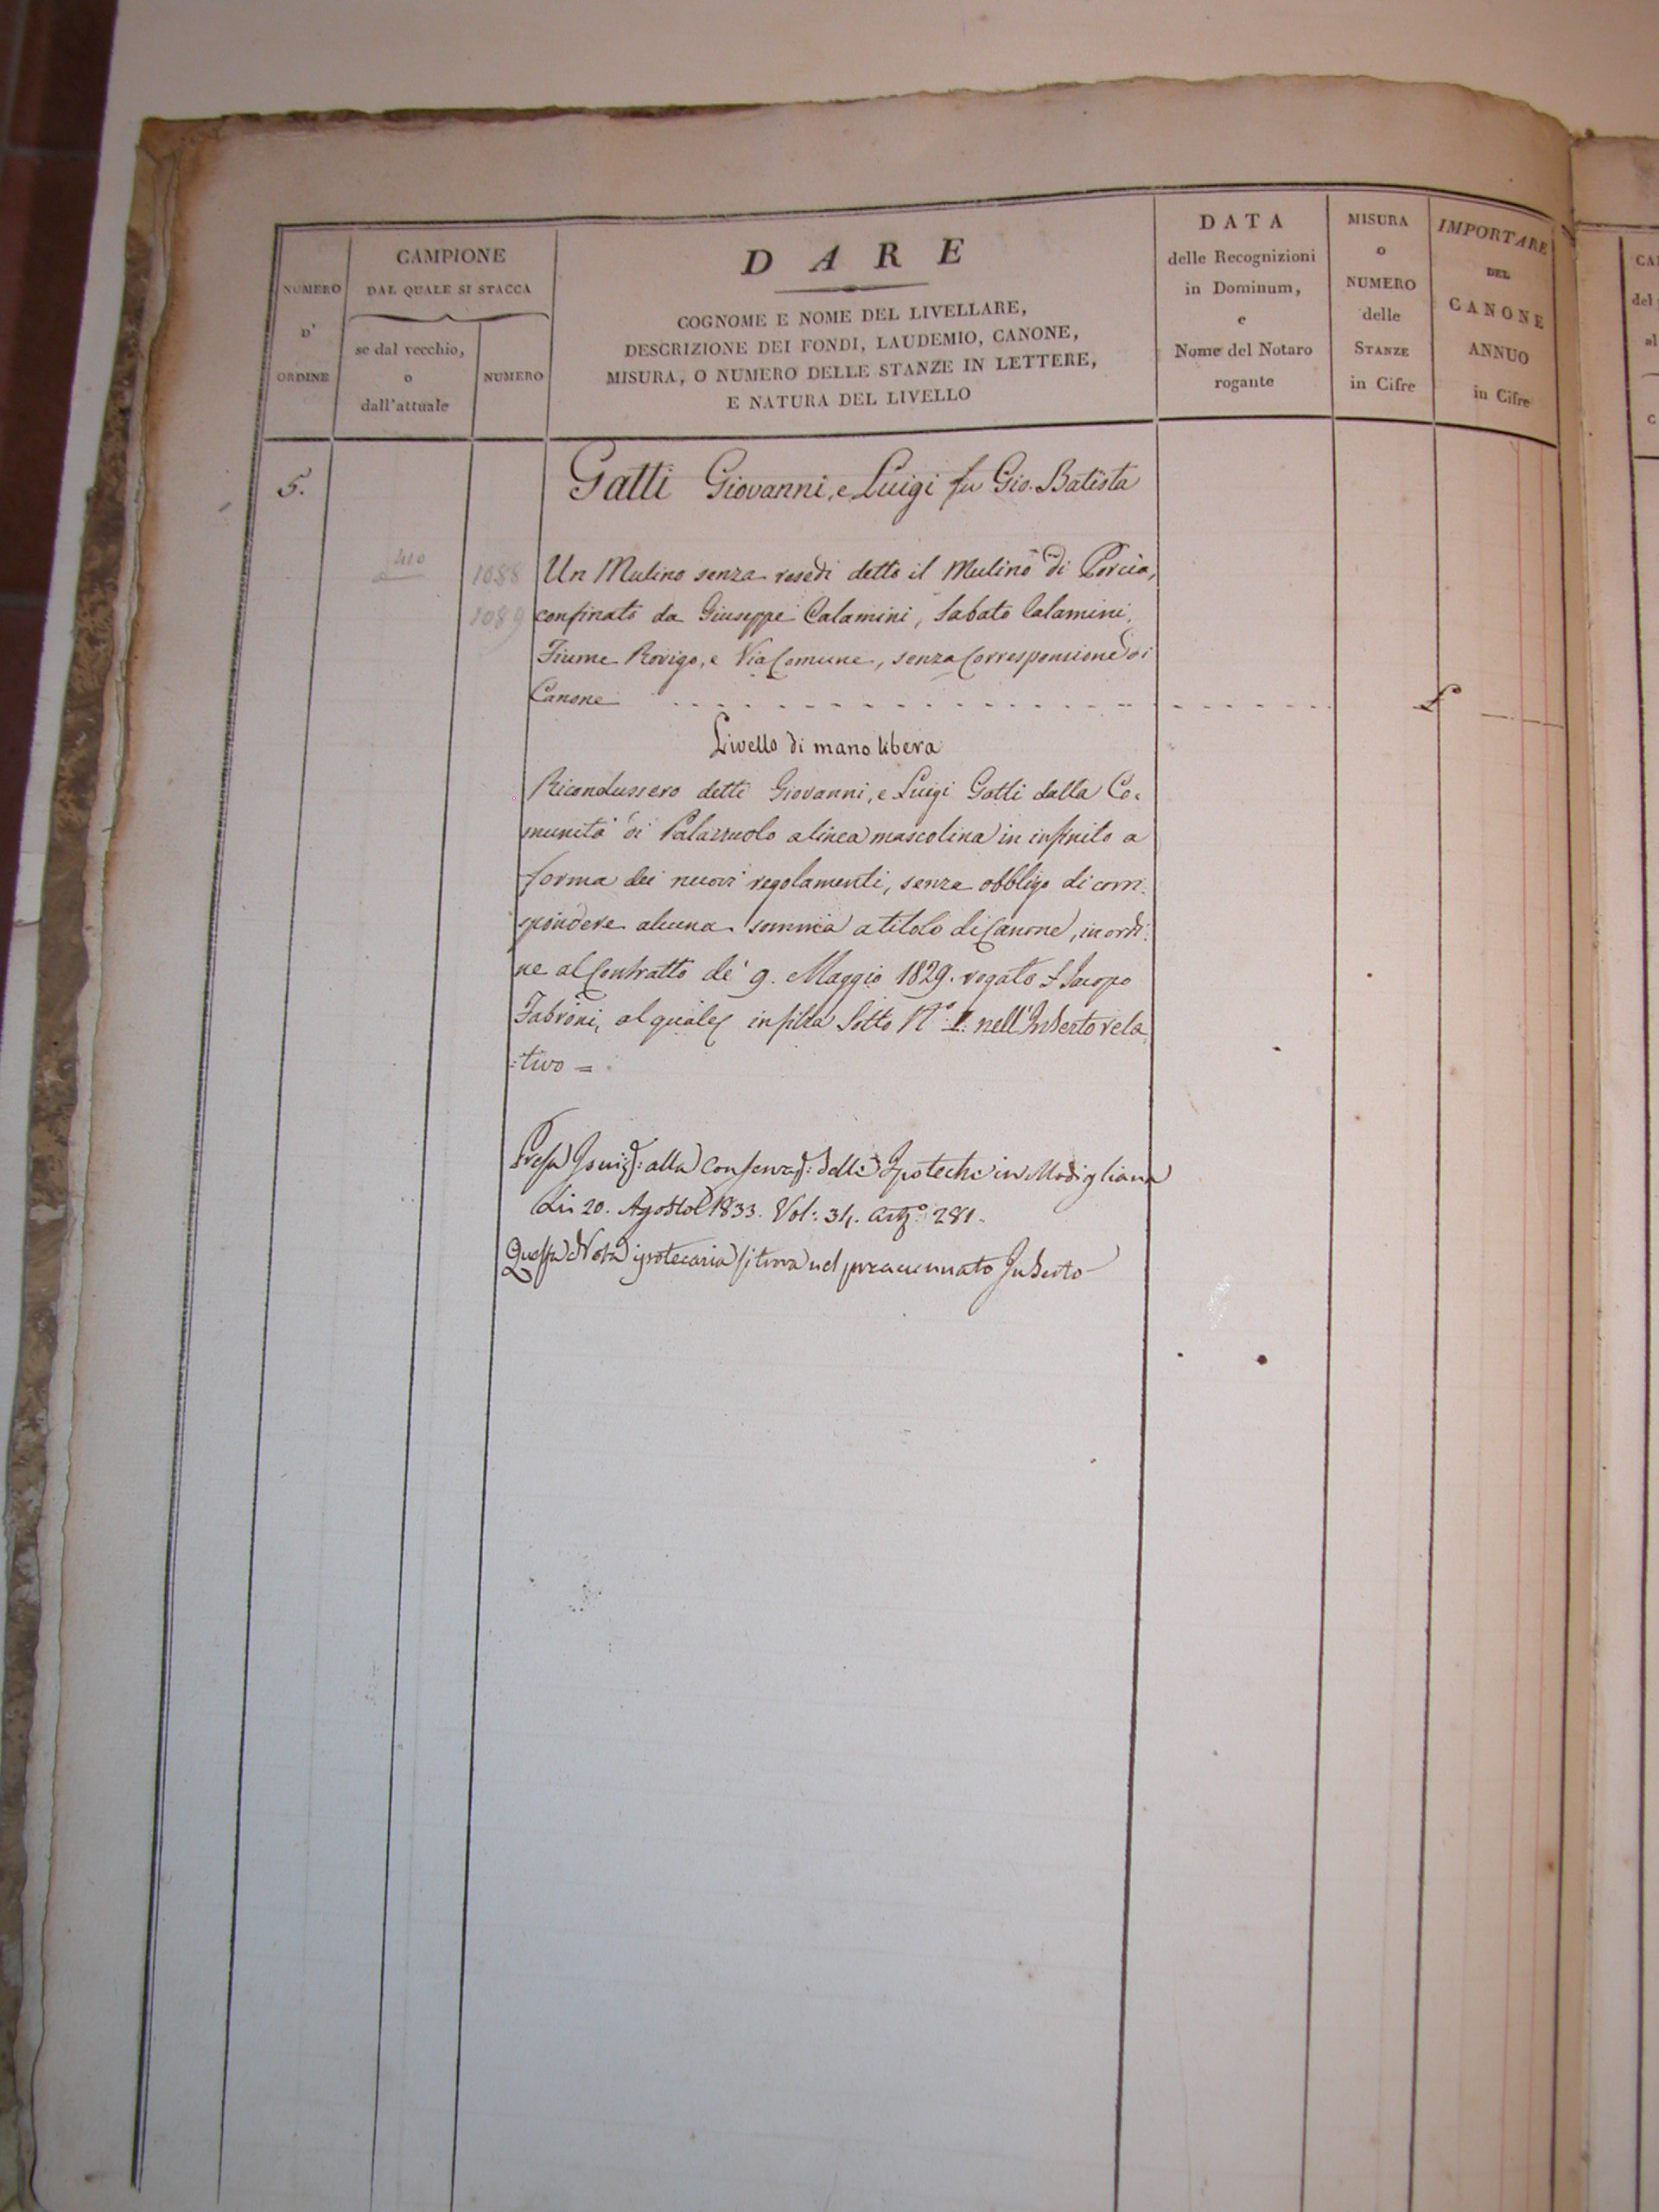 NUMERO
D'
ORDINE
CAMPIONE
DAL QUALE SI STACCA
se dal vecchio,
o
dall'attuale
NUMERO
DARE
COGNOME E NOME DEL LIVELLARE,
DESCRIZIONE DEI FONDI, LAUDEMIO, CANONE,
MISURA, O NUMERO DELLE STANZE IN LETTERE,
E NATURA DEL LIVELLO
DATA
delle Recognizioni
in Dominum,
e
Nome del Notaro
rogante
MISURA
O
NUMERO
delle
STANZE
in Cifre
IMPORTARE
DEL
CANONE
ANNUO
in Cifre
5.
Gatti Giovanni, e Luigi fu Gio. Batista
410
1088 Un Mulino senza resedi detto il Mulino di
1089 confinato da Giuseppe Calamini, Sabato Calamini,
Fiume Rovigo, e Via Comune, senza Corresponsione di
Canone
Livello di mano libera
Ricondussero detti Giovanni, e Luigi Gatti dalla Co-
munità di Palazzuolo a linea mascolina in infinito a
forma dei nuovi regolamenti, senza obbligo di corri-
spondere alcuna somma a titolo di Canone, in ordi-
ne al Contratto de' 9. Maggio 1829. rogato Jacopo
Fabroni, al quale in filza Sotto N.° 1. nell'Inserto rela
:tivo =
Presa Inscriz: alla Conservaz: delle Ipoteche in Modigliana
Li 20. Agosto 1833. Vol: 34. Art.° 281.
Questa Nota ipotecaria si trova nel preaccennato Inserto